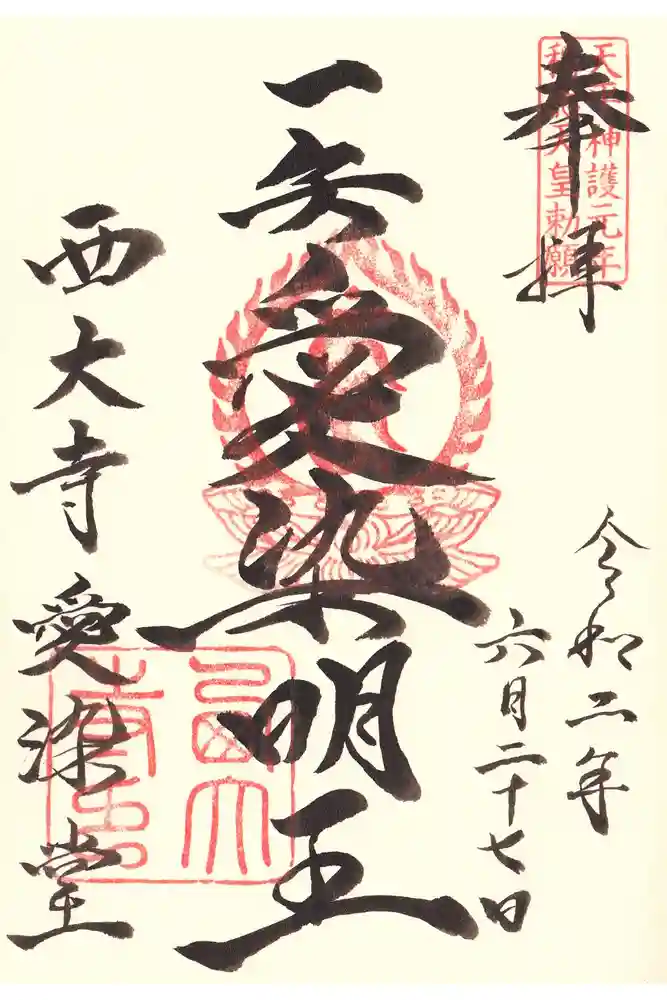 奉拝
天平神護元年
天皇勅願
令和二年
六月二十七日
一矢愛染明王
西大寺愛染堂
西大
寺印